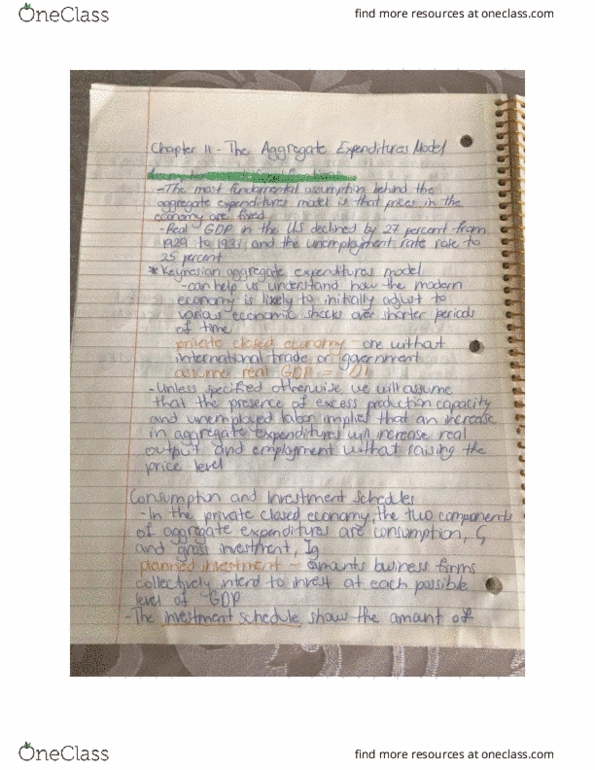 OneClass
find more resources at oneclass.com
Chapter 11 - The Aggregate Expenditures Model
-The most fundamental assumption behind the
aggregate expenditures model is that prices in the
economy are fixed
-Real GDP in the US declined by 27 percent from
1929 to 1933, and the unemployment rate rose to
25 percent
*Keynesian aggregate expenditures model
-can help us understand how the modern
economy is likely to initially adjust to
various economic shocks over shorter periods
of time
private closed economy - one without
international trade or government
assume real GDP = DI
-Unless specified otherwise we will assume
that the presence of excess production capacity
and unemployed labor implies that an increase
in aggregate expenditures will increase real
output and employment without raising the
price level
Consumption and Investment Schedules
-In the private closed economy, the two components
of aggregate expenditures are consumption, C,
and gross investment, Ig
planned investment - amounts business firms
collectively intend to invest at each possible
level of GDP
-The investment schedule show the amount of
OneClass
find more resources at oneclass.com